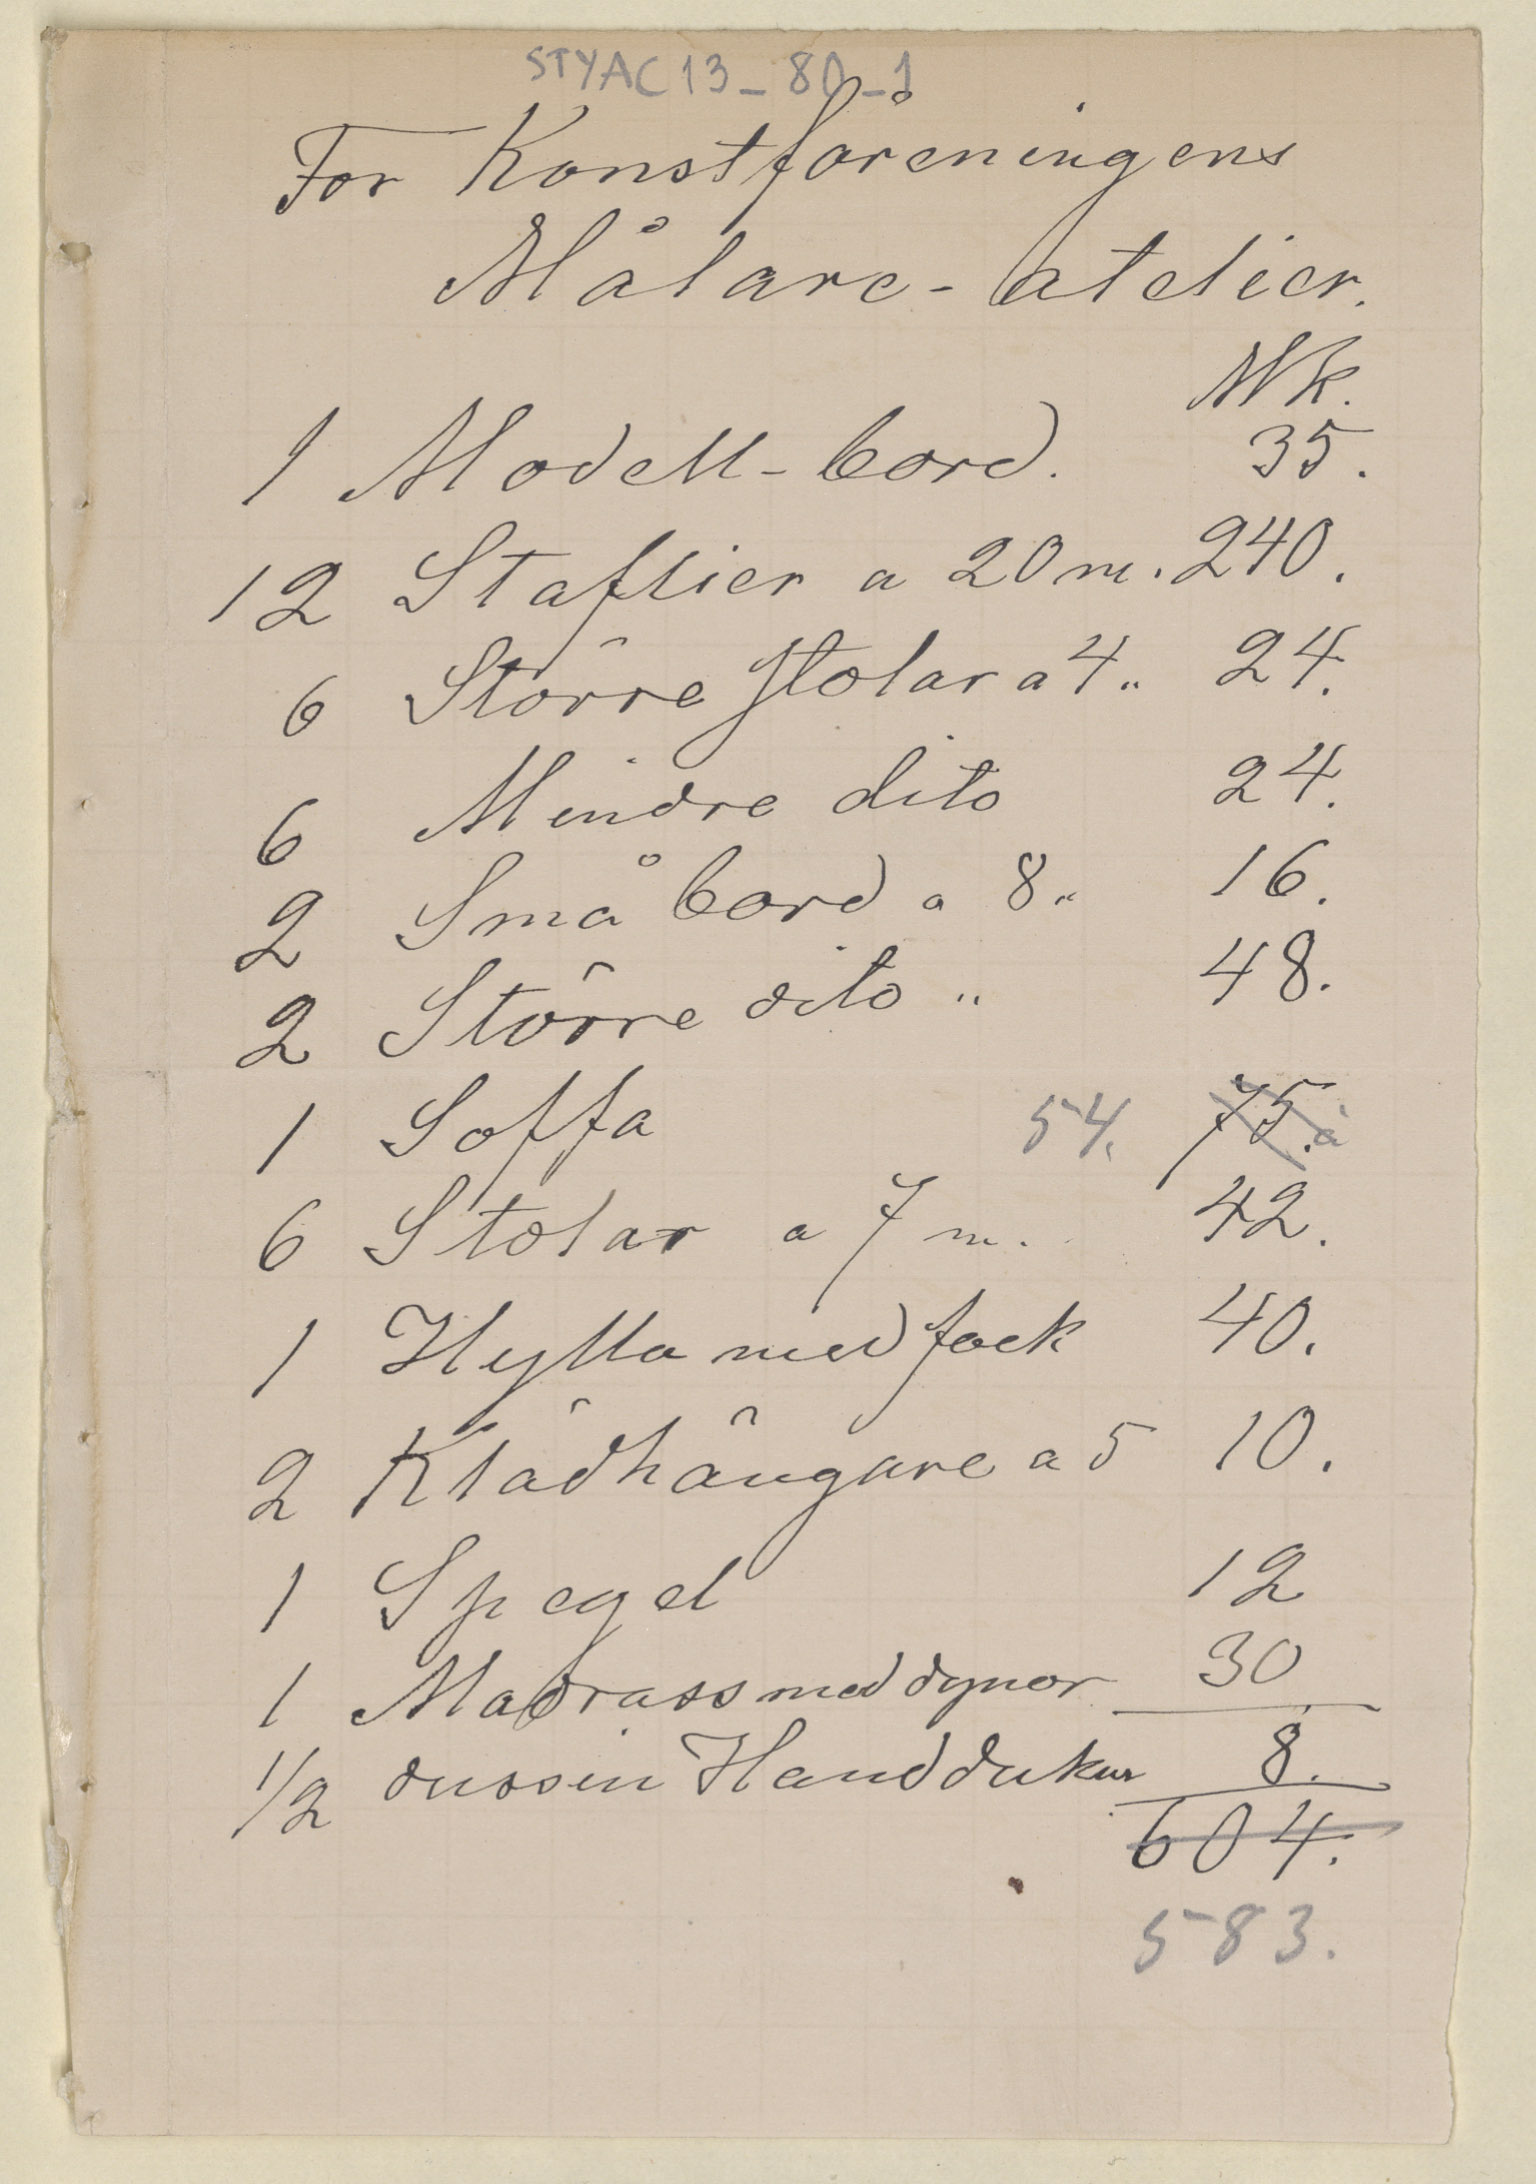 STYAC13_80_1
For Konstföreningens
Målare-atelier.
Mk.
1 Modell-bord. 35.
12 Stafflier a 20 m. 240.
6 Större stolar a 4 " 24.
6 Mindre dito 24.
2 Små bord a 8 " 16.
2 Större dito " 48.
1 Soffa 54. 75. à
6 Stolar a 7 m. 42.
1 Hylla med fack 40.
2 Klädhängare a 5 10.
1 Spegel 12
1 Madrass med dynor 30
1/2 dussin Handdukar 8.
604.
583.